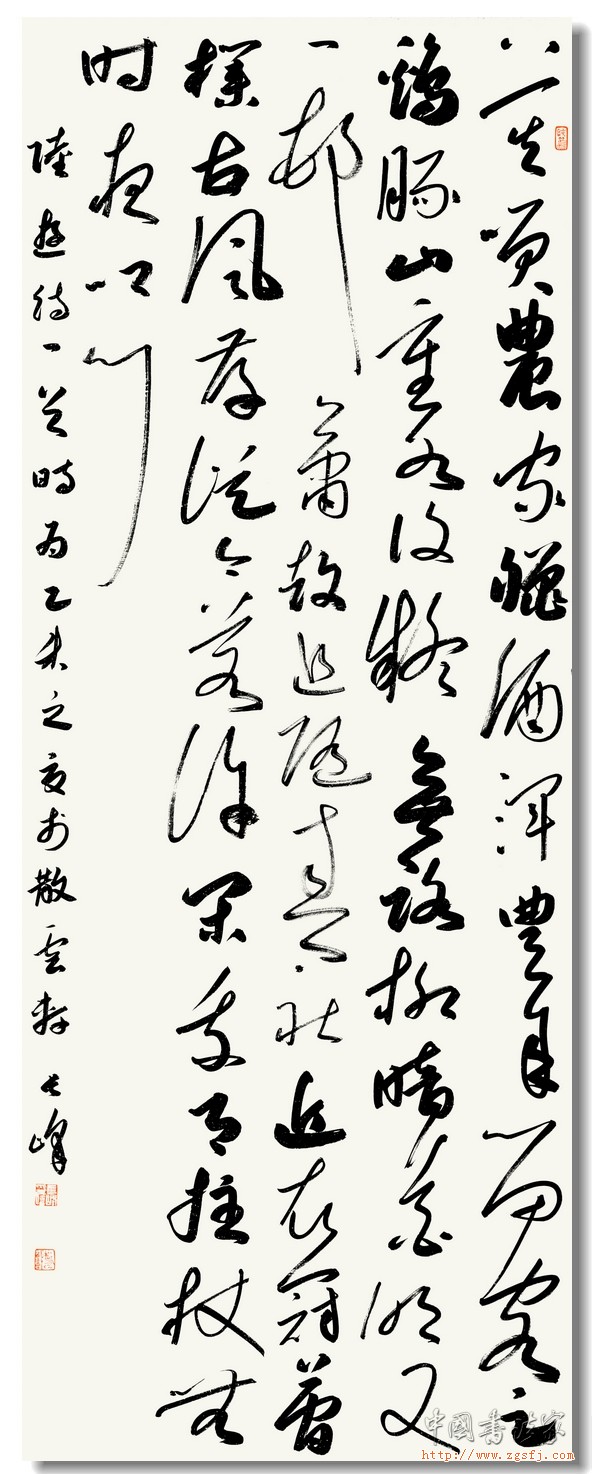 莫笑農家臘酒渾豐年留客足
鷄豚山重水複疑無路柳暗花明又
一邨簫鼓追隨春社近衣冠簡
樸古風存從今若許閑乘月拄杖無
时夜叩門
陸遊詩一首時為乙未之夏於散雲軒長峰
中國書法家
http://www.zgsfj.com